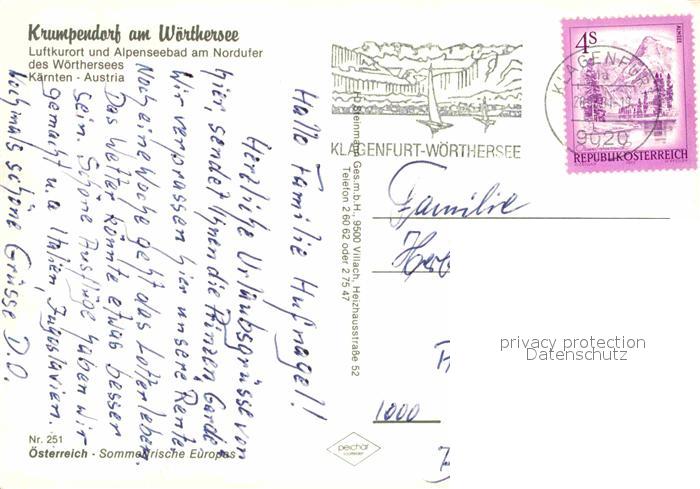 Krumpendorf am Wörthersee
Luftkurort und Alpenseebad am Nordufer
des Wörthersees
Kärnten - Austria
Hallo Familie Hufnagel!
Herzliche Urlaubsgrüsse von
hier, sendet Ihnen die Prinzen Garde
Wir verprassen hier unsere Rente
Noch eine Woche geht das Lotterleben.
Das Wetter könnte etwas besser
sein. Schöne Ausflüge haben wir
gemacht u.a Italien, Jugoslavien.
Nochmals schöne Grüsse D.O.
Nr. 251
Österreich - Sommerfrische Europas
Steinmann Ges.m.b.H., 9500 Villach, Heizhausstraße 52
Telefon 2 60 62 oder 2 75 47
KLAGENFURT-WÖRTHERSEE
KLAGENFURT
9020
4S
ALMSEE
REPUBLIK ÖSTERREICH
Familie
Her
privacy protection
Datenschutz
1000